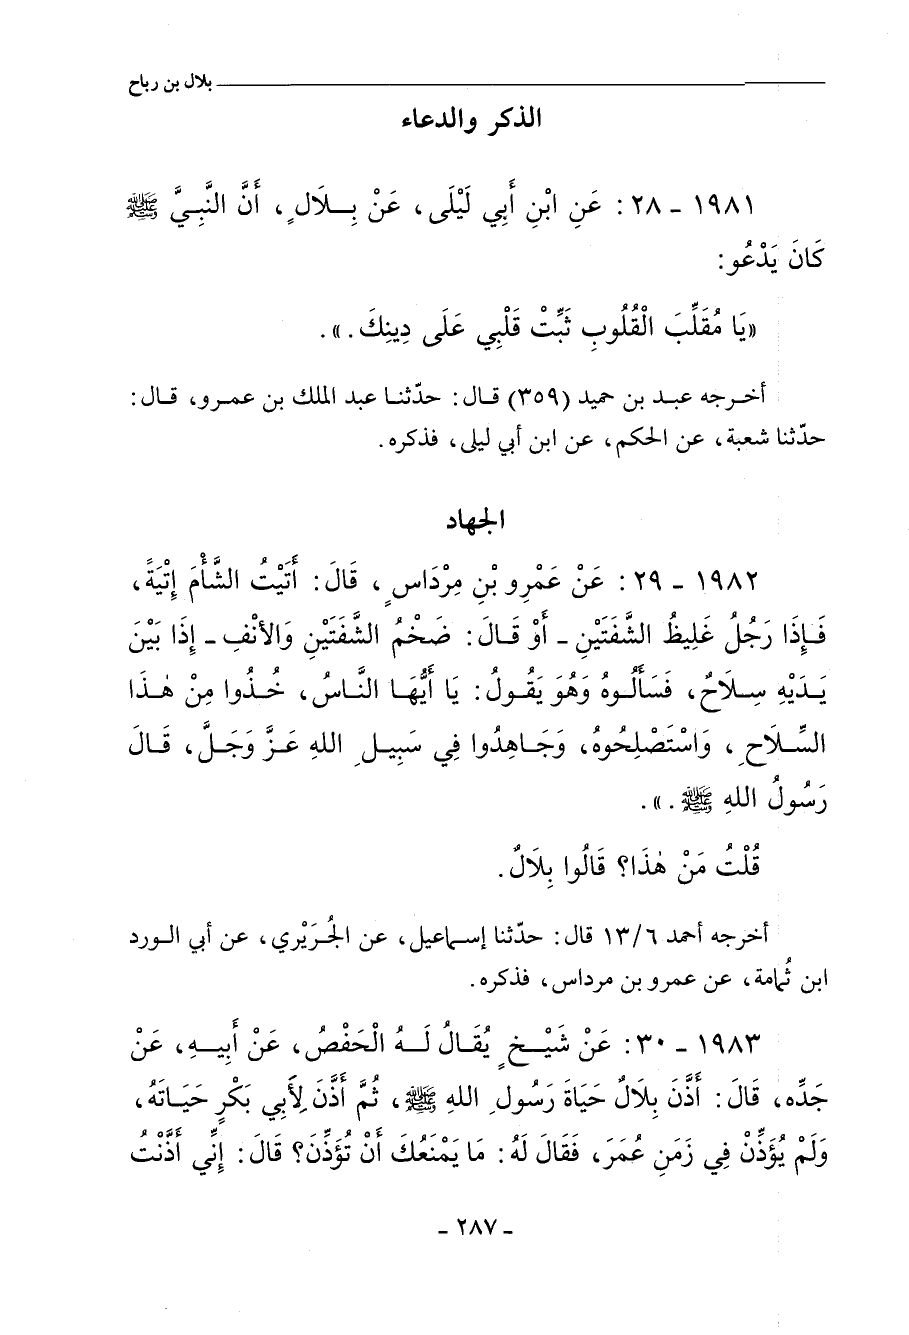 بلال بن رباح
الذكر والدعاء
١٩٨١ - ٢٨ : عَنِ ابْنِ أَبِي لَيْلَى، عَنْ بِـلَالٍ، أَنَّ النَّبِيَّ ﷺ
كَانَ يَدْعُو:
«يَا مُقَلِّبَ الْقُلُوبِ ثَبِّتْ قَلْبِي عَلَى دِينِكَ.».
أخـرجه عبـد بن حميد (٣٥٩) قـال: حدّثنـا عبد الملك بن عمـرو، قـال:
حدّثنا شعبة، عن الحكم، عن ابن أبي ليلى، فذكره.
الجهاد
١٩٨٢ - ٢٩ : عَنْ عَمْرِو بْنِ مِرْدَاسٍ، قَالَ: أَتَيْتُ الشَّأْمَ إِتْيَةً،
فَـإِذَا رَجُلٌ غَلِيظُ الشَّفَتَيْنِ - أَوْ قَالَ: ضَخْمُ الشَّفَتَيْنِ وَالأَنْفِ - إِذَا بَيْنَ
يَـدَيْهِ سِـلَاحٌ، فَسَأَلُوهُ وَهُوَ يَقُولُ: يَا أَيُّهَـا النَّاسُ، خُـذُوا مِنْ هٰـذَا
السِّـلَاحِ، وَاسْتَصْلِحُوهُ، وَجَـاهِدُوا فِي سَبِيـلِ اللهِ عَـزَّ وَجَـلَّ، قَـالَ
رَسُولُ اللهِ ﷺ.».
قُلْتُ مَنْ هٰذَا؟ قَالُوا بِلَالٌ.
أخرجه أحمد ١٣/٦ قال: حدّثنا إسـماعيل، عن الجُرَيْري، عن أبي الـورد
ابن ثُمامة، عن عمرو بن مرداس، فذكره.
١٩٨٣ - ٣٠ : عَنْ شَيْـخٍ يُقَـالُ لَـهُ الْحَفْصُ، عَنْ أَبِيـهِ، عَنْ
جَدِّه، قَالَ: أَذَّنَ بِلَالٌ حَيَاةَ رَسُولِ اللهِ ﷺ، ثُمَّ أَذَّنَ لِأَبِي بَكْرٍ حَيَـاتَهُ،
وَلَمْ يُؤَذِّنْ فِي زَمَنِ عُمَرَ، فَقَالَ لَهُ: مَا يَمْنَعُكَ أَنْ تُؤَذِّنَ؟ قَالَ: إِنِّي أَذَّنْتُ
- ٢٨٧ -